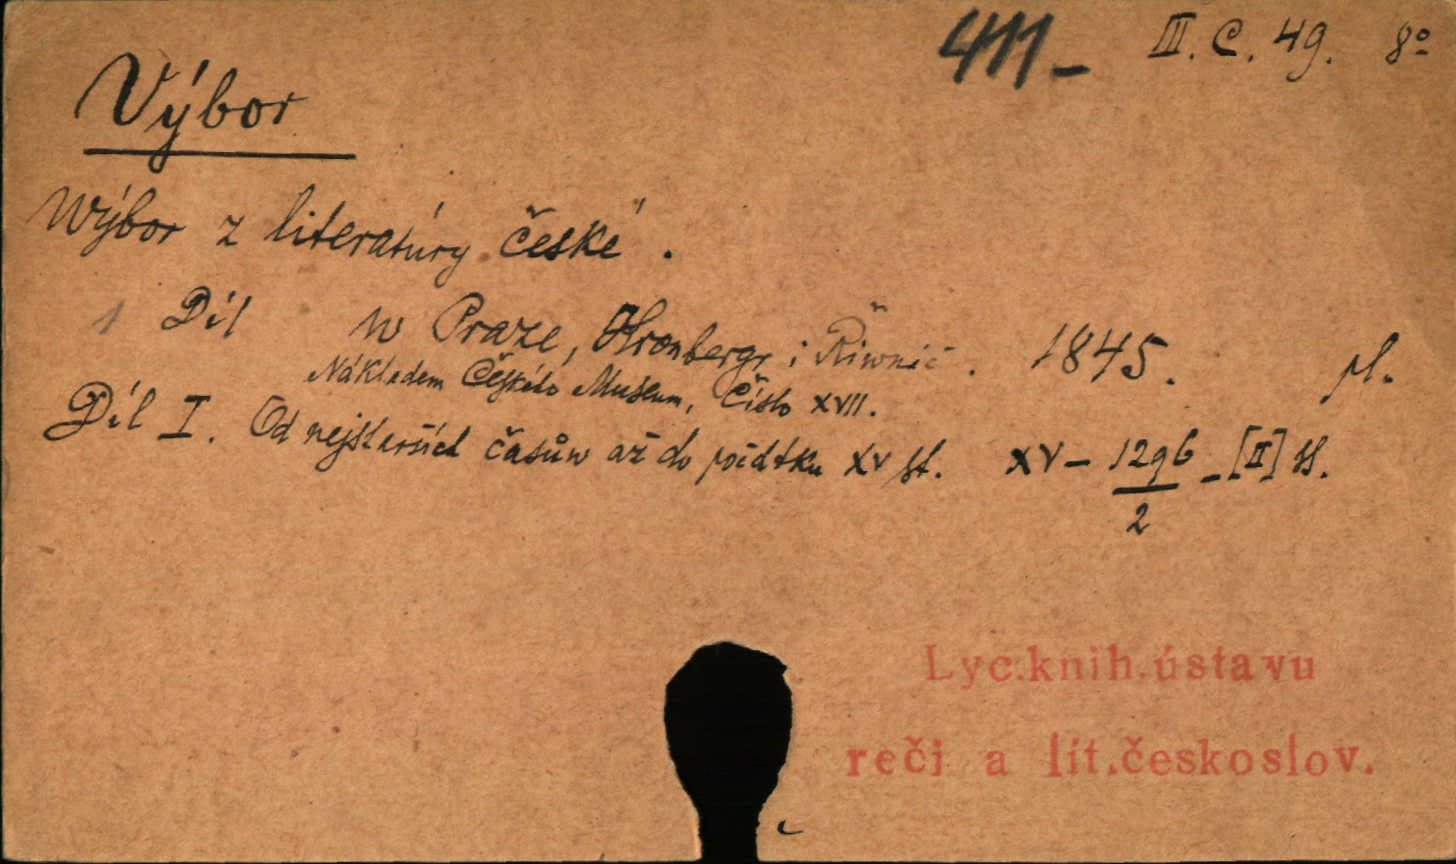 411- III. C. 49. 8º
Výbor
Wýbor z literatúry české.
1 Díl w Praze, Kronbergr i Řiwnič. 1845. pl.
Nákladem Českého Museum, Číslo XVII.
Díl I. Od nejstaršich časůw až do počátku XV st. XV - 1296/2 - [II] ss.
Lyc.knih.ústavu
reči a lit.českoslov.